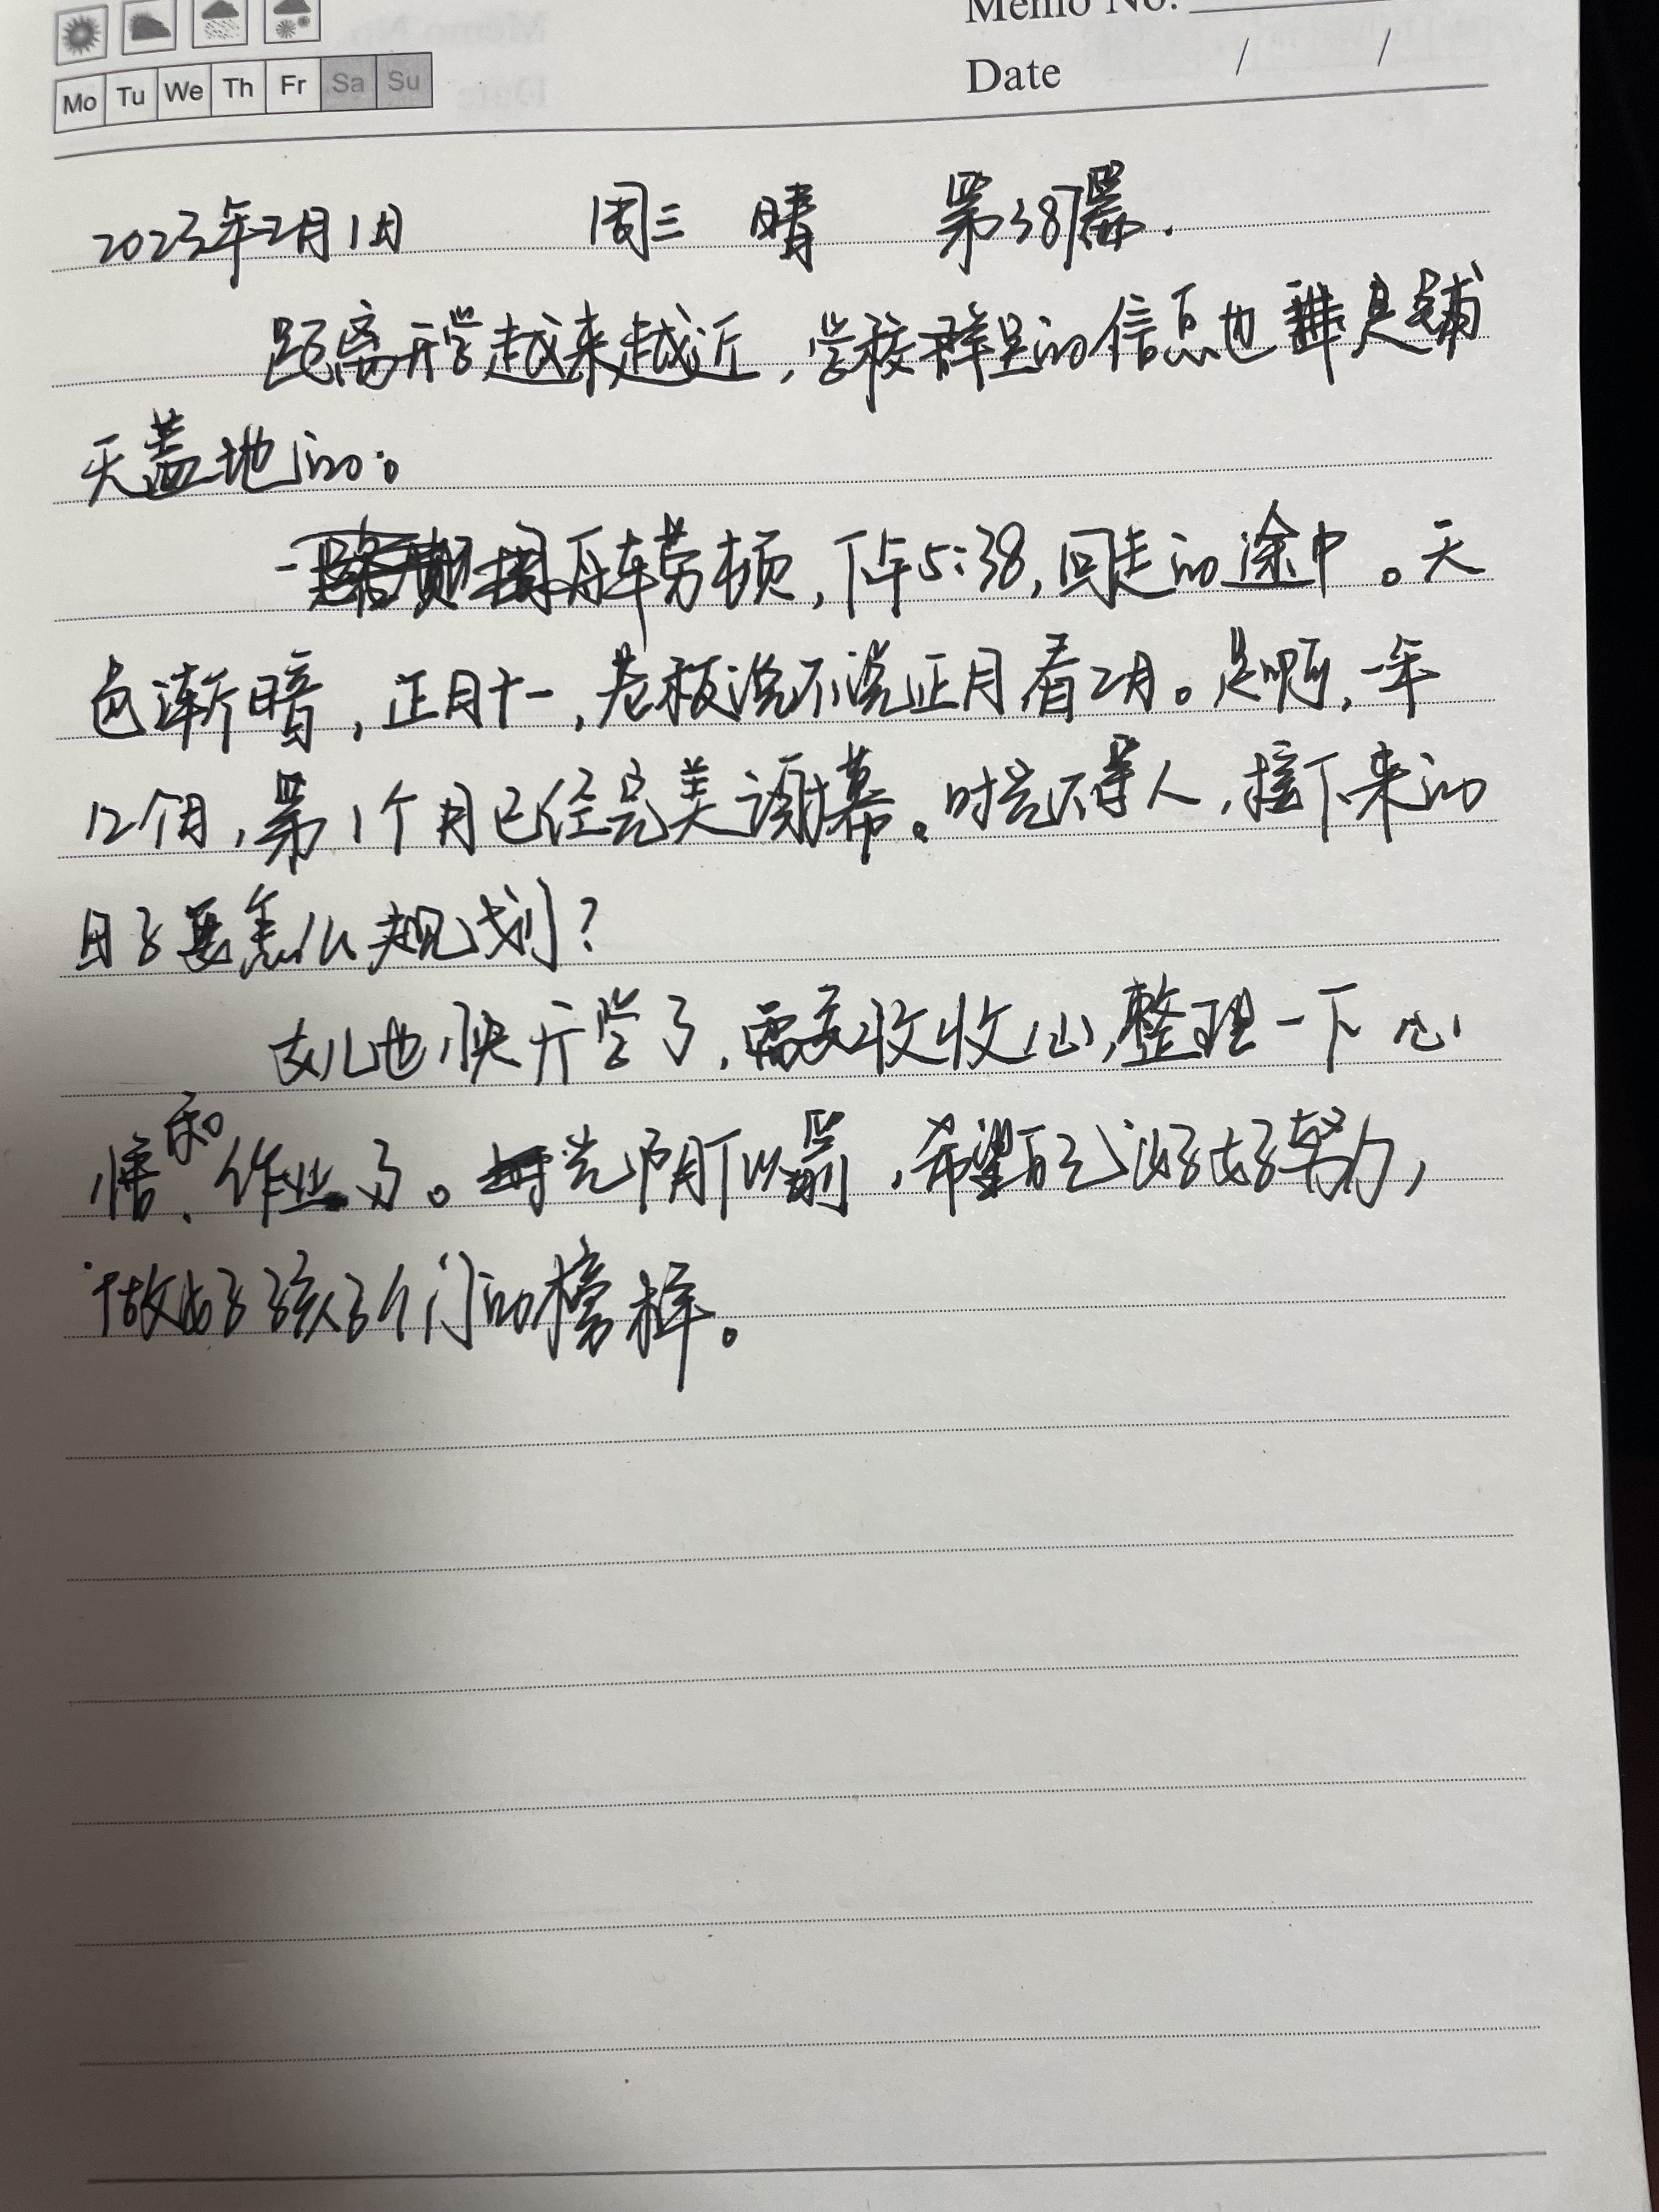 Memo No.
Mo Tu We Th Fr Sa Su
Date / /
2023年2月1日 周三 晴 第38篇.
距离开学越来越近，学校群里的信息也是铺
天盖地的。
舟车劳顿，下午5:38，回走的途中。天
色渐暗，正月十一，老板说不说正月看2月。是啊，一年
12个月，第1个月已经完美谢幕。时光不等人，接下来的
日子要怎么规划？
女儿也快开学了，需要收收心，整理一下心
情和作业了。时光阴似箭，希望自己好好努力，
做好孩子们的榜样。